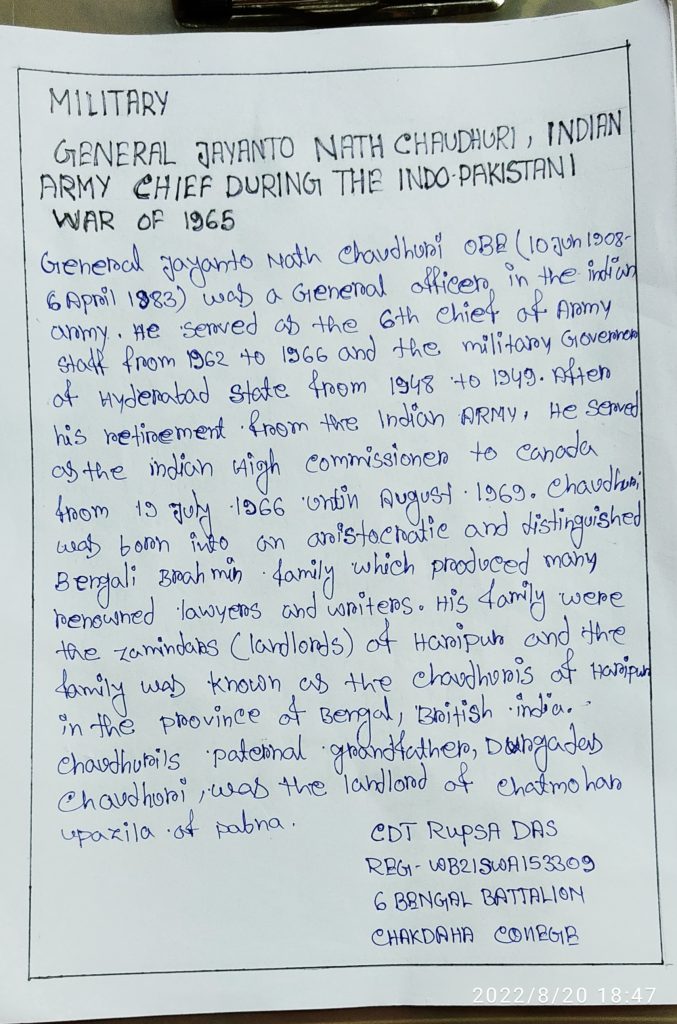 MILITARY
GENERAL JAYANTO NATH CHAUDHURI, INDIAN
ARMY CHIEF DURING THE INDO-PAKISTANI
WAR OF 1965
General Jayanto Nath Chaudhuri OBE (10 Jun 1908-
6 April 1983) was a General officer in the indian
army. He served as the 6th chief of Army
staff from 1962 to 1966 and the military Governer
of Hyderabad state from 1948 to 1949. After
his retirement from the Indian ARMY, He served
as the indian High commissioner to canada
from 19 July 1966 untin August 1969. Chaudhuri
was born into an aristocratic and distinguished
Bengali Brahmin family which produced many
renowned lawyers and writers. His family were
the zamindars (landlords) of Haripur and the
family was known as the chaudhuris of Haripur
in the province of Bengal, British india.
chaudhurils paternal grandfather, Durgadas
Chaudhuri, was the landlord of chatmohar
upazila of pabna.
CDT RUPSA DAS
REG- WB21SWA153309
6 BENGAL BATTALION
CHAKDAHA COllEGE
2022/8/20 18:47